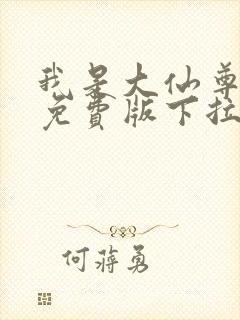 我是大仙尊
免费版下拉
何蒋勇